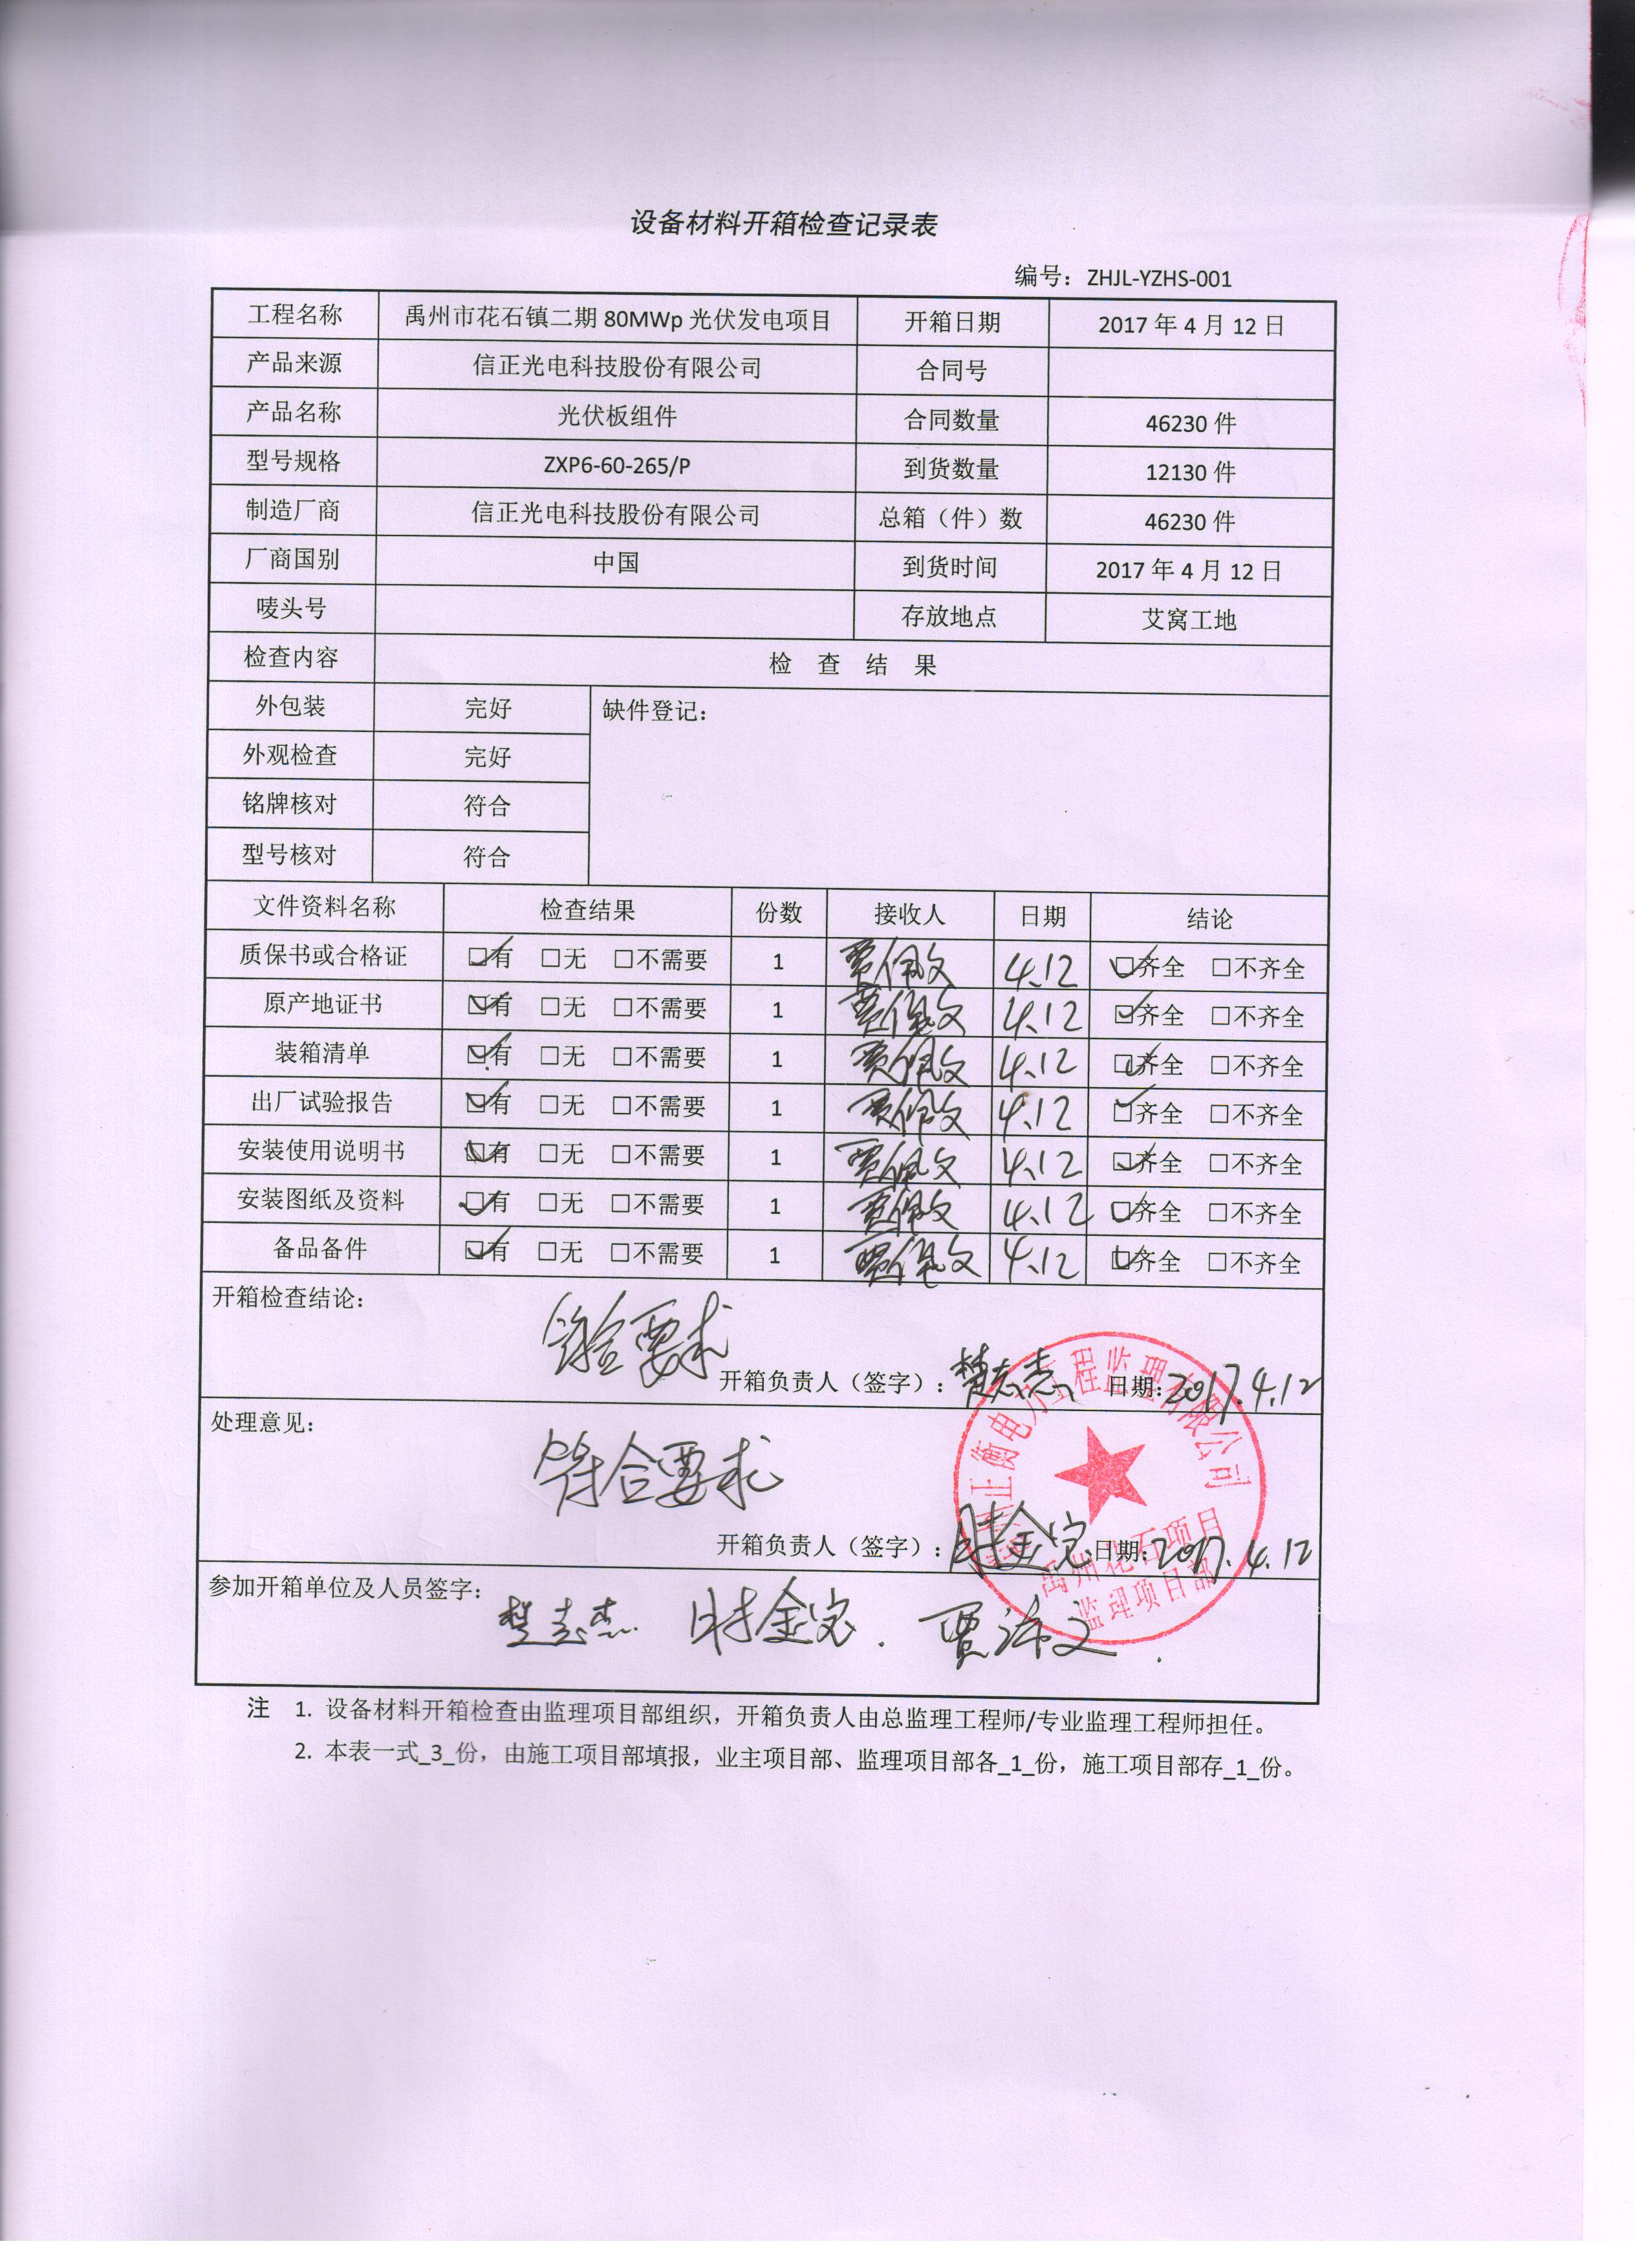 设备材料开箱检查记录表
编号：ZHJL-YZHS-001
工程名称 禹州市花石镇二期 80MWp 光伏发电项目 开箱日期 2017 年 4 月 12 日
产品来源 信正光电科技股份有限公司 合同号
产品名称 光伏板组件 合同数量 46230 件
型号规格 ZXP6-60-265/P 到货数量 12130 件
制造厂商 信正光电科技股份有限公司 总箱（件）数 46230 件
厂商国别 中国 到货时间 2017 年 4 月 12 日
唛头号 存放地点 艾窝工地
检查内容 检 查 结 果
外包装 完好 缺件登记：
外观检查 完好
铭牌核对 符合
型号核对 符合
文件资料名称 检查结果 份数 接收人 日期 结论
质保书或合格证 ☑有 □无 □不需要 1 4.12 ☑齐全 □不齐全
原产地证书 ☑有 □无 □不需要 1 4.12 ☑齐全 □不齐全
装箱清单 ☑有 □无 □不需要 1 4.12 ☑齐全 □不齐全
出厂试验报告 ☑有 □无 □不需要 1 4.12 ☑齐全 □不齐全
安装使用说明书 ☑有 □无 □不需要 1 4.12 ☑齐全 □不齐全
安装图纸及资料 ☑有 □无 □不需要 1 4.12 ☑齐全 □不齐全
备品备件 ☑有 □无 □不需要 1 4.12 ☑齐全 □不齐全
开箱检查结论：
要求
开箱负责人（签字）：楚志杰 日期：2017.4.12
处理意见：
符合要求
开箱负责人（签字）： 日期：2017.4.12
正衡电力工程监理有限公司
禹州花石项目
监理项目部
参加开箱单位及人员签字：
楚志杰
注 1. 设备材料开箱检查由监理项目部组织，开箱负责人由总监理工程师/专业监理工程师担任。
2. 本表一式_3_份，由施工项目部填报，业主项目部、监理项目部各_1_份，施工项目部存_1_份。